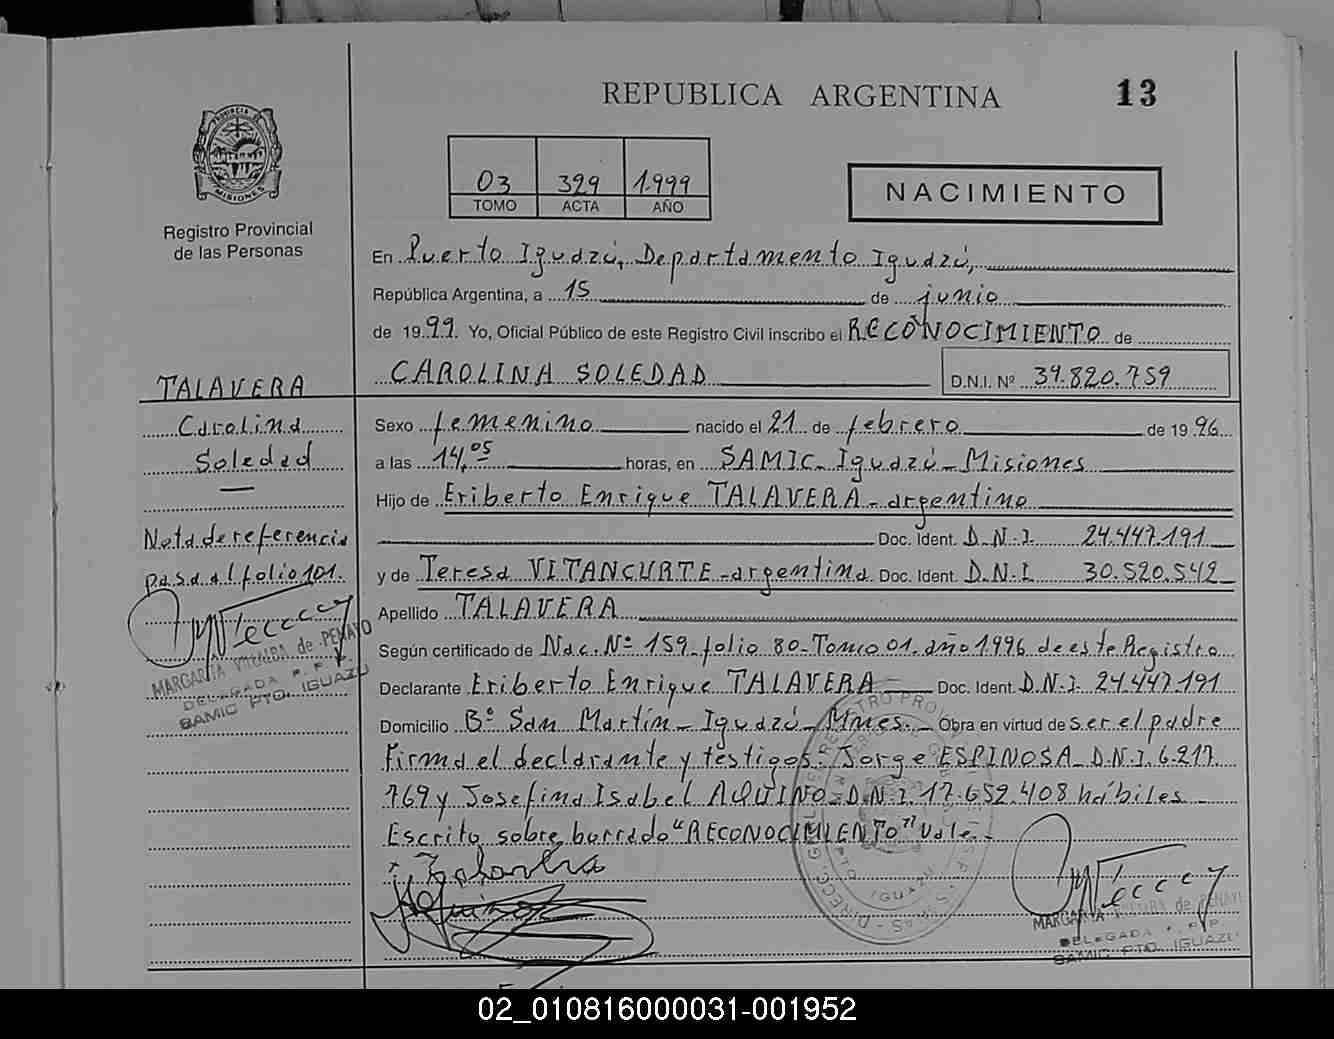 REPUBLICA ARGENTINA
13
PROVINCIA DE
MISIONES
Registro Provincial
de las Personas
03 329 1.999
TOMO ACTA AÑO
NACIMIENTO
En Puerto Iguazú, Departamento Iguazú,
República Argentina, a 15 de junio
de 1999. Yo, Oficial Público de este Registro Civil inscribo el RECONOCIMIENTO de
CAROLINA SOLEDAD D.N.I. Nº 39.820.759
Sexo femenino nacido el 21 de febrero de 1996
a las 14,05 horas, en SAMIC_Iguazú_Misiones
Hijo de Eriberto Enrique TALAVERA_argentino
Doc. Ident. D.N.I. 24.447.191
y de Teresa VITANCURTE_argentina Doc. Ident. D.N.I. 30.520.542
Apellido TALAVERA
Según certificado de Nac. Nº 159_folio 80_Tomo 01. año 1.996 de este Registro
Declarante Eriberto Enrique TALAVERA Doc. Ident. D.N.I. 24.447.191
Domicilio Bº San Martín_Iguazú_Mnes._ Obra en virtud de ser el padre
Firma el declarante y testigos: Jorge ESPINOSA_D.N.I. 6.217.
769 y Josefina Isabel AQUINO_D.N.I. 17.652.408 hábiles_
Escrito sobre borrado "RECONOCIMIENTO" Vale._
TALAVERA
Carolina
Soledad
Nota de referencia
pasa al folio 101.
MARGARITA de PENAYO
DELEGADA R. P. P.
SAMIC PTO. IGUAZU
IGUAZU
MARGARITA de PENAYO
DELEGADA R. P. P.
SAMIC PTO. IGUAZU
02_010816000031-001952